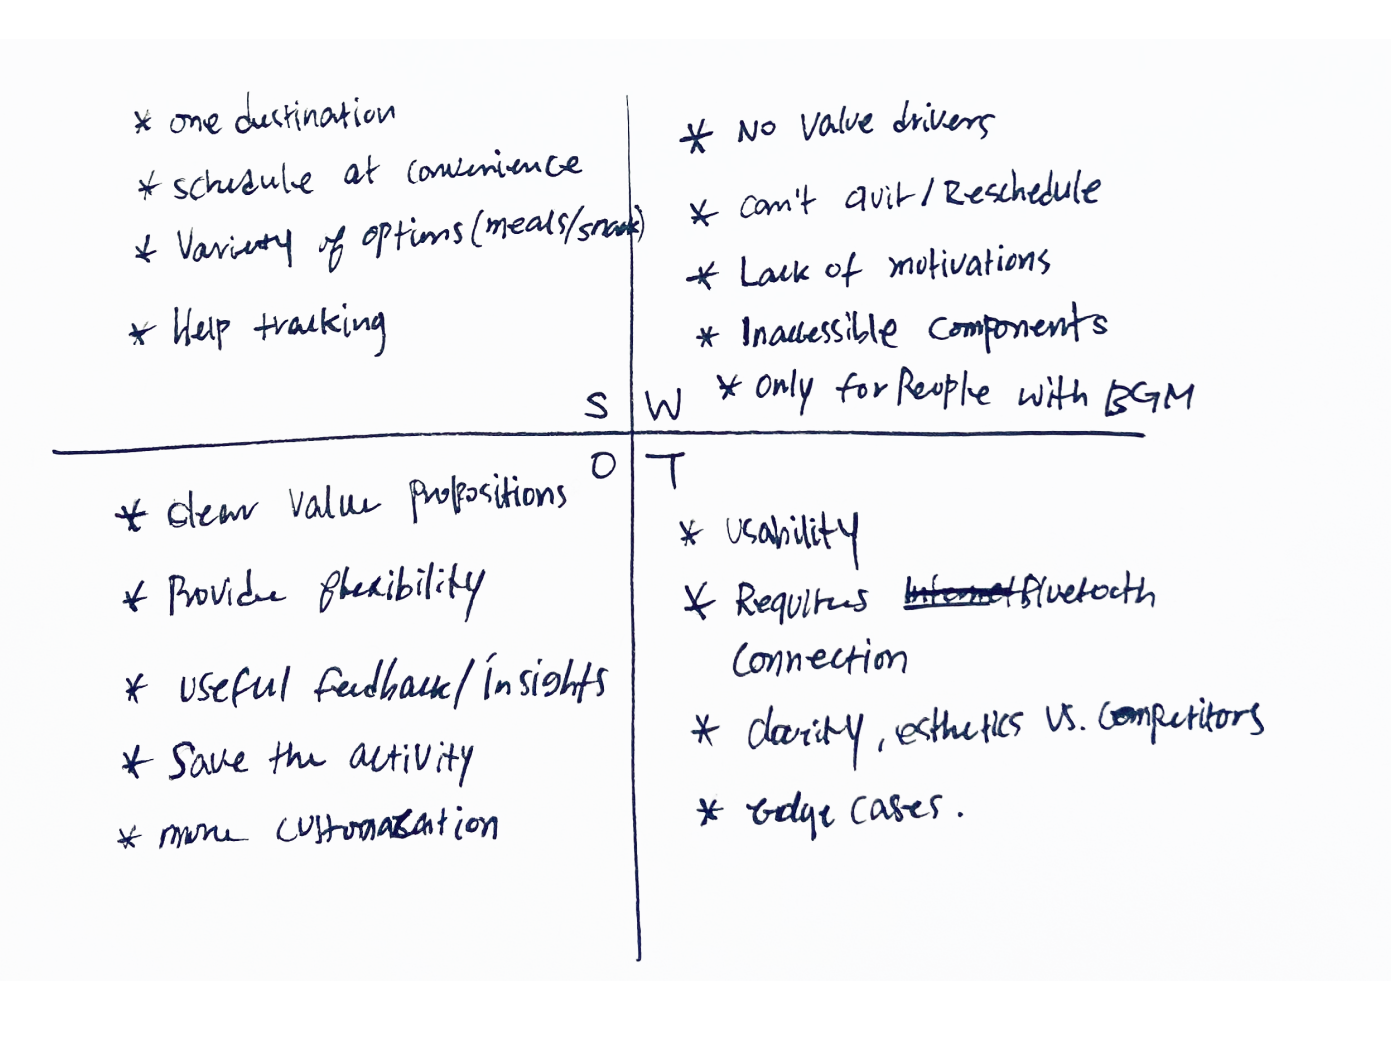 * one destination
* schedule at convenience
* Variety of options (meals/snack)
* Help tracking
S
* No Value drivers
* Can't quit / Reschedule
* Lack of motivations
* Inaccessible components
* Only for People with BGM
W
O
* Clear Value propositions
* Provide flexibility
* useful feedback / insights
* Save the activity
* more
T
* usability
* Requires Bluetooth
connection
* clarity, esthetics vs. Competitors
* edge cases.